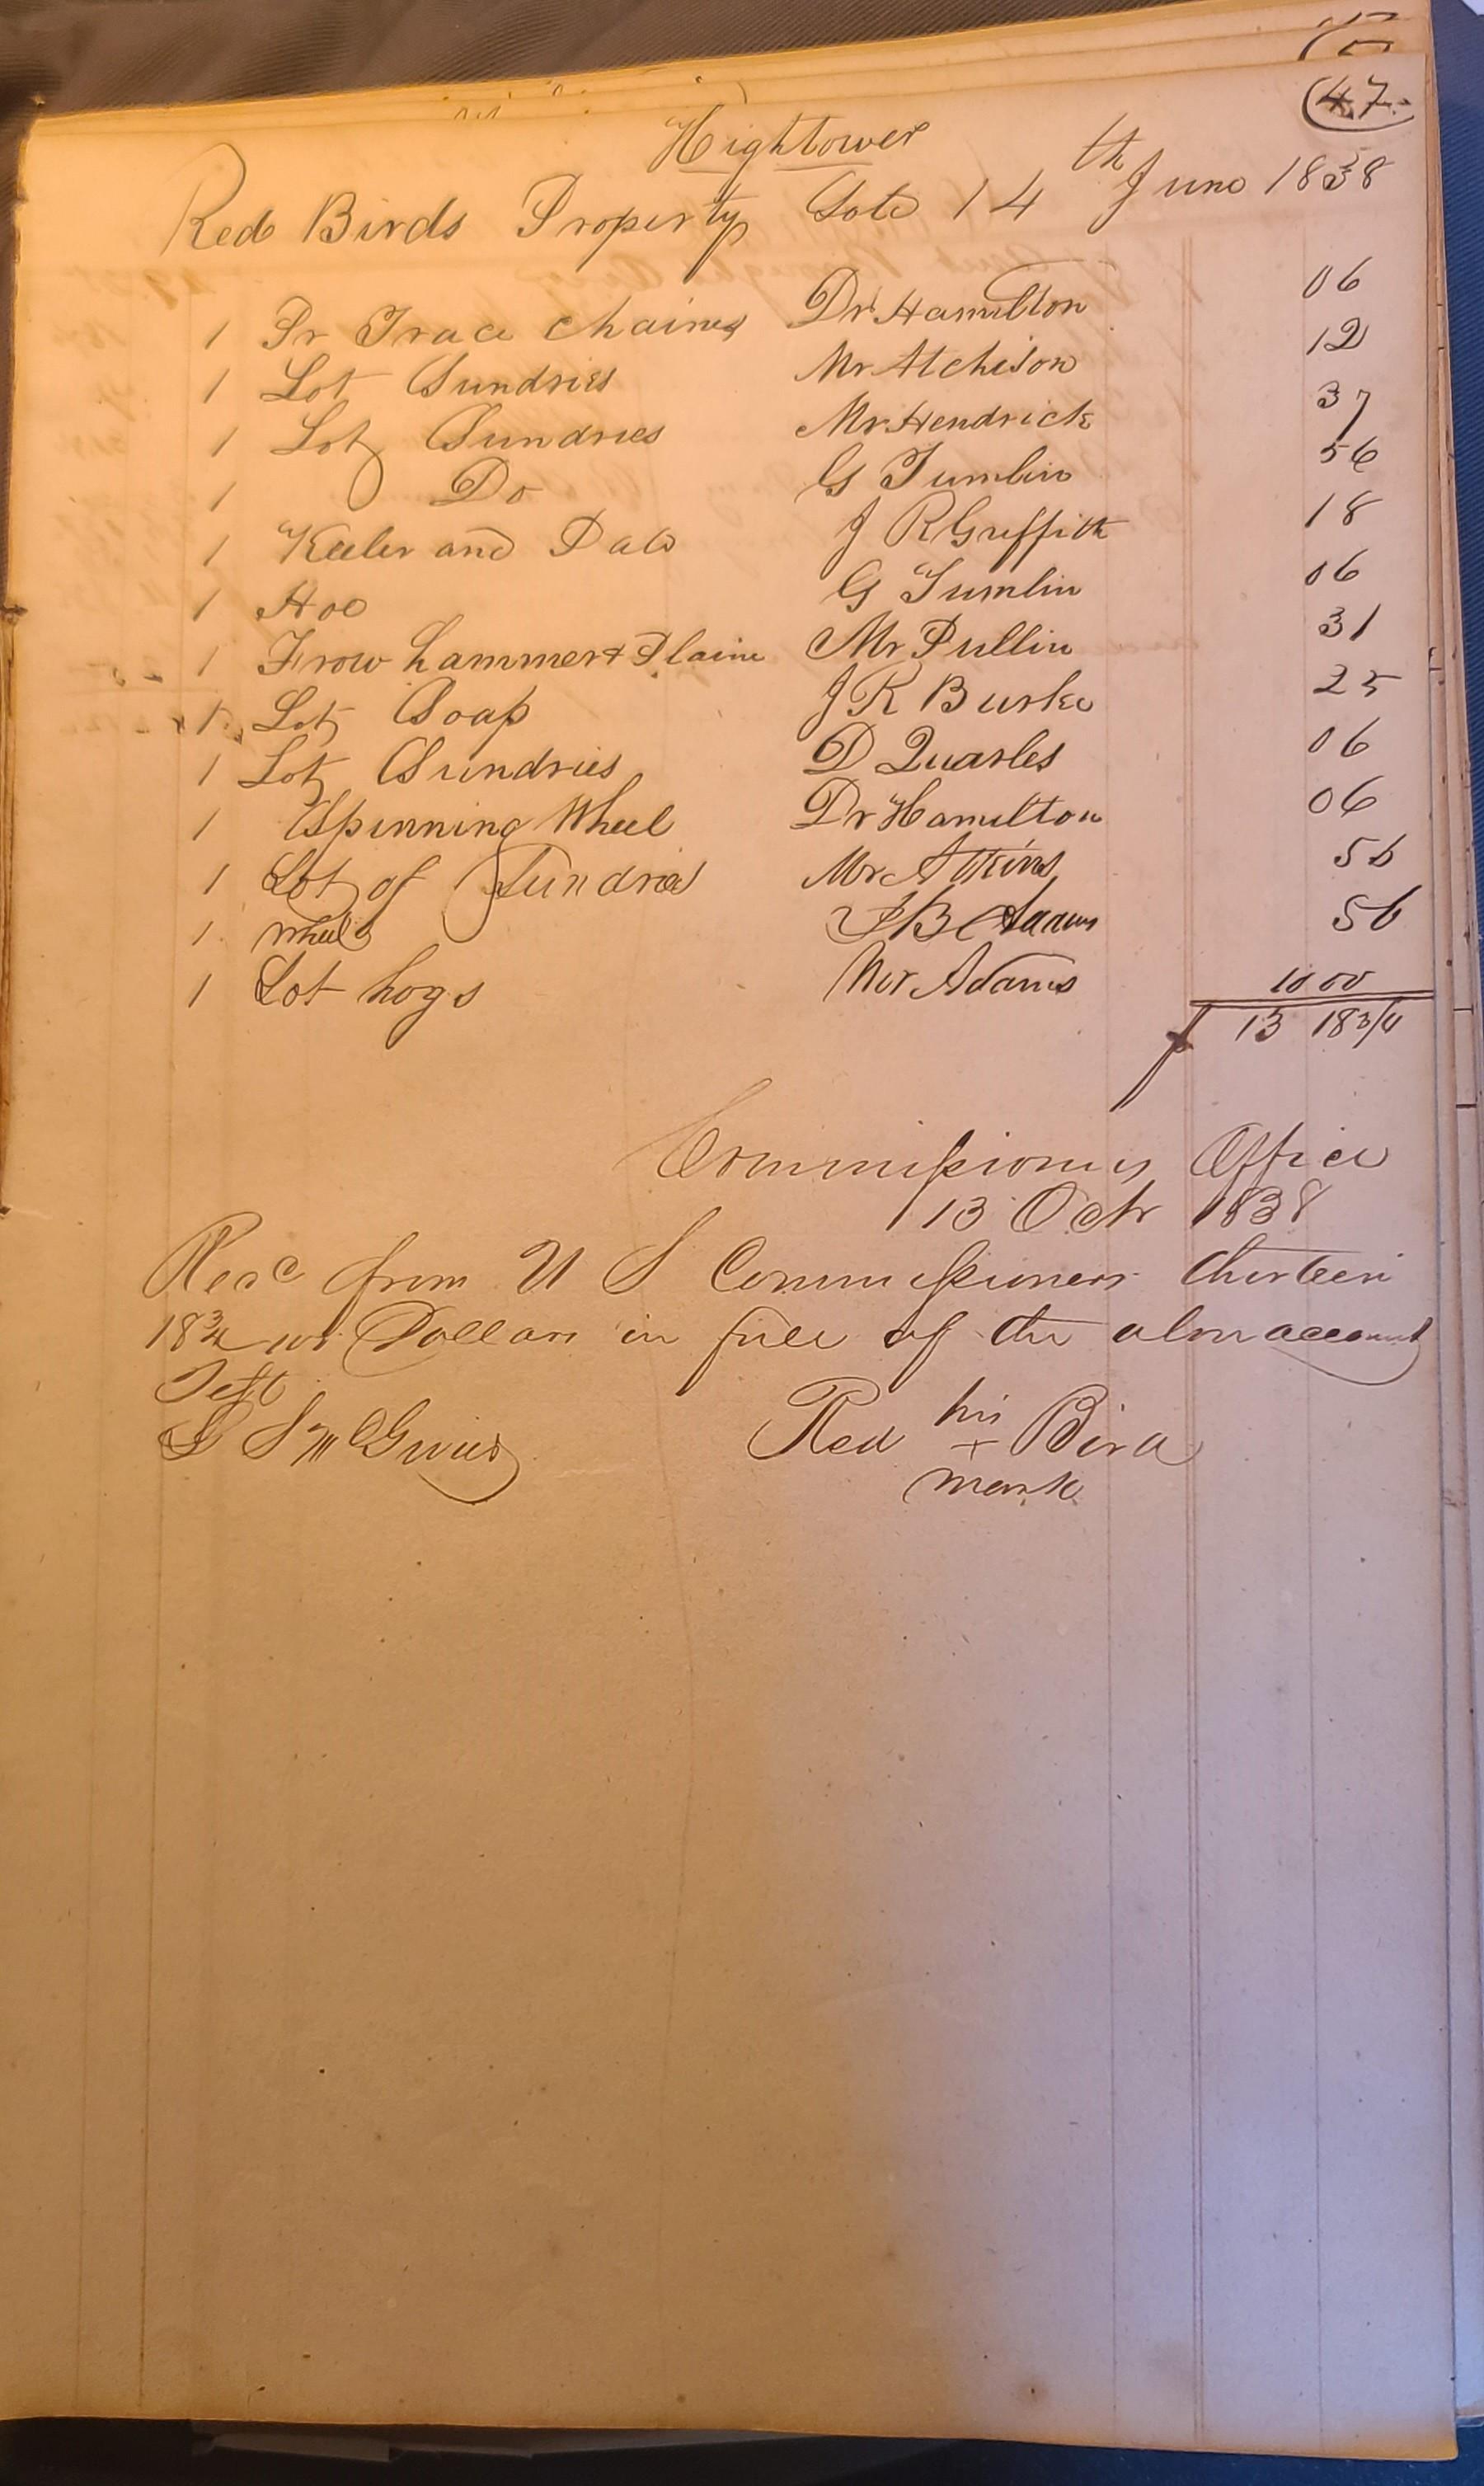 47
Hightower
Red Birds Property Sold 14th June 1838
1 Pr Trace Chaines Dr Hamilton 06
1 Lot Sundries Mr Atchison 12
1 Lot Sundries Mr Hendrick 37
1 Do G Tumlin 56
1 Keeler and Pale J R Griffith 18
1 Hoe G Tumlin 06
1 Frow hammer & Plaine Mr Pullin 31
1 Lot Soap J R Burke 25
1 Lot Sundries D Quarles 06
1 Spinning Wheel Dr Hamilton 06
1 Lot of Sundries Mr Atkins 56
1 Wheel B Adams 56
1 Lot hogs Mr Adams 10 00
$ 13 18 3/4
Commissioners Office
13 Octr 1838
Recd from U S Commissioners thirteen
18 3/4 Dollars in full of the above account
Test
S McGuire Red his + mark Bird